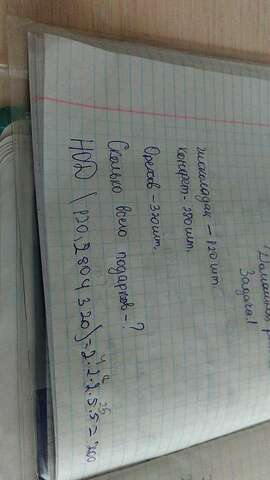 Домашняя р
Задача 1
Шоколадок - 120 шт
Конфет - 280 шт.
Орехов - 320 шт.
Сколько всего подарков - ?
НОД (120, 280 и 320) = 2·2·2·5·5 = 200
4 8 25